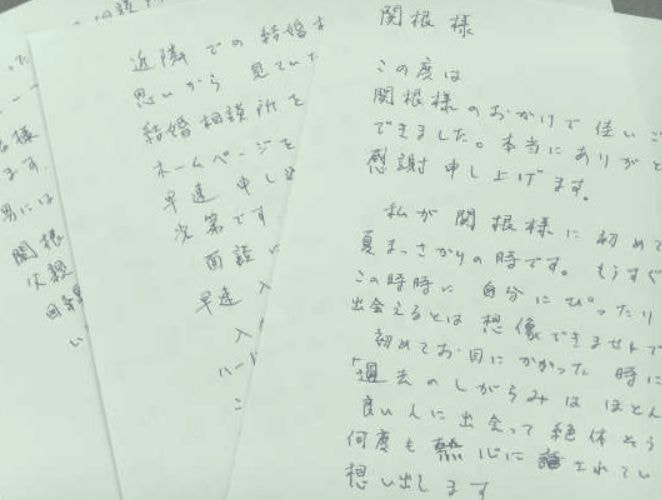 関根様
この度は
関根様のおかげで佳いご
できました。本当にありがと
感謝申し上げます。
私が関根様に初めて
夏まっさかりの時です。もうすぐ
この時時に自分にぴったり
出会えるとは想像できませんで
初めてお目にかかった時に
「過去のしがらみはほとん
良い人に出会って絶体そう
何度も熱心に話されてい
想い出します
近隣での結婚
思いから見ていた
結婚相談所を
ホームページを
早速申し込
次第です
面談
早速入
入
ハード
こ
様
ます。
男には
関根
父親